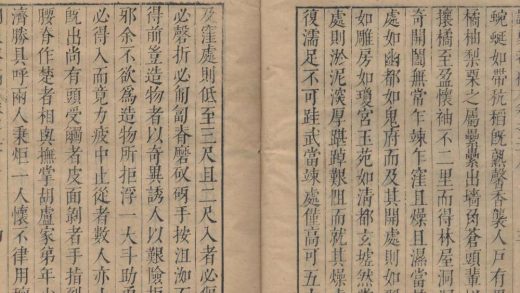 蜿蜒如帶秔稻旣熟馨香襲人戶有
橘柚梨栗之屬纍纍出墻角蒼頭輩
攘橘至盈懷袖不二里而得林屋洞
奇開闔無常乍竦乍窪且燥且濕當
處如幽都如鬼府而及其開處則如
如雕房如瓊宮玉苑如清都玄墟然
處則淤泥深厚踸踔艱阻而就其燥
復濡足不可跬武當竦處僅高可五
及窪處則低至三尺且二尺入者必
必磬折必匍匐脊磨砑手按沮洳
得前豈造物者以奇異誘人以艱險
邪余不欲爲造物所拒浮一大斗助
必得入而竟方疲中止從者數人亦
旣出尚有頭受礪者皮面剝者手指
腰脊作楚者相與撫掌胡盧家弟年
濟勝具呼兩人乘炬一人懷不律用